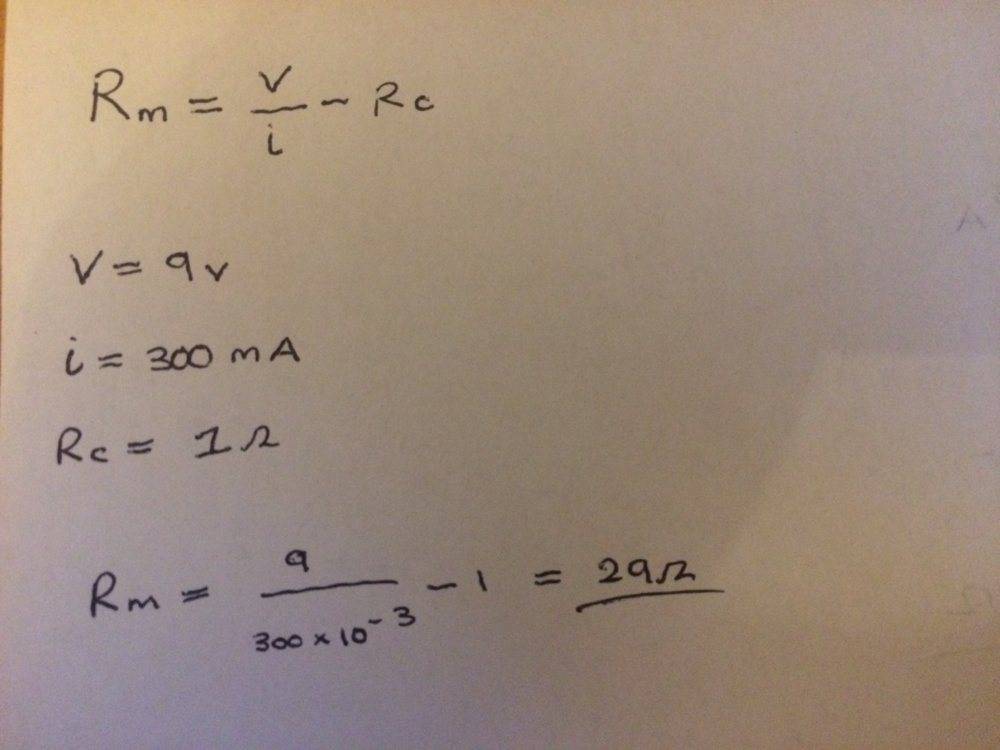 Rm = V/i - Rc
V = 9v
i = 300 mA
Rc = 1Ω
Rm = 9/300 x 10^-3 - 1 = 29Ω